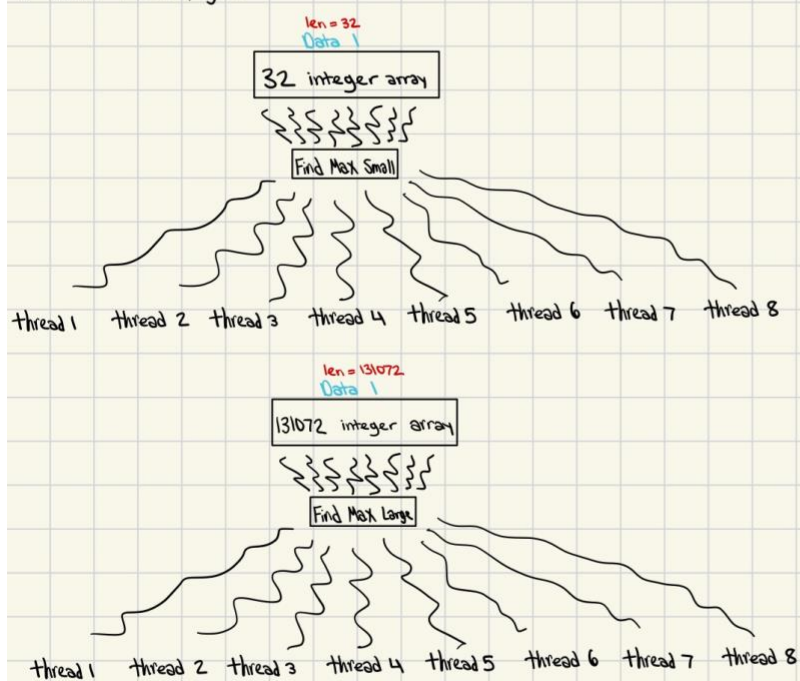 len = 32
Data 1
32 integer array
Find Max Small
thread 1 thread 2 thread 3 thread 4 thread 5 thread 6 thread 7 thread 8
len = 131072
Data 1
131072 integer array
Find Max Large
thread 1 thread 2 thread 3 thread 4 thread 5 thread 6 thread 7 thread 8